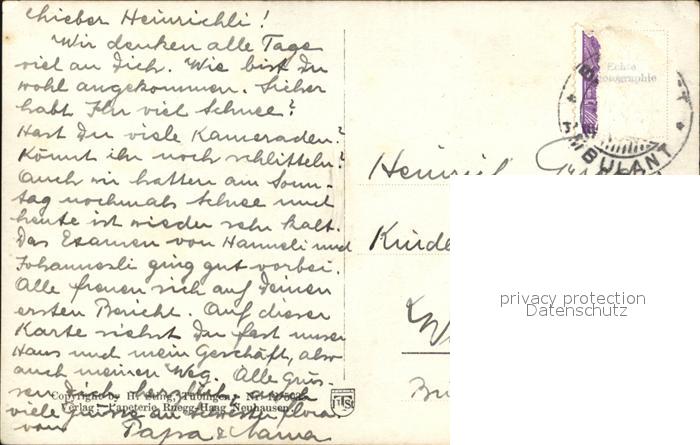 Lieber Heinrichli!
Wir denken alle Tage
viel an Dich. Wie bist Du
wohl angekommen. Sicher
habt Ihr viel Schnee?
Hast Du viele Kameraden?
Könnt ihr noch schlitteln?
Auch wir hatten am Sonn-
tag nochmals Schnee und
heute ist wieder sehr kalt.
Das Examen von Hanneli und
Johannesli ging gut vorbei.
Alle freuen sich auf Deinen
ersten Bericht. Auf dieser
Karte siehst Du fast unser
Haus und mein Geschäft, also
auch meinen Weg. Alle Grüs-
sen Dich herzlich
viele Grüsse an
von Papa & Mama
Copyright by Tübingen, Nr.
Verlag: Papeterie Ruegg-Haag Neuhausen
Echte
AMBULANT
Heinrich
privacy protection
Datenschutz